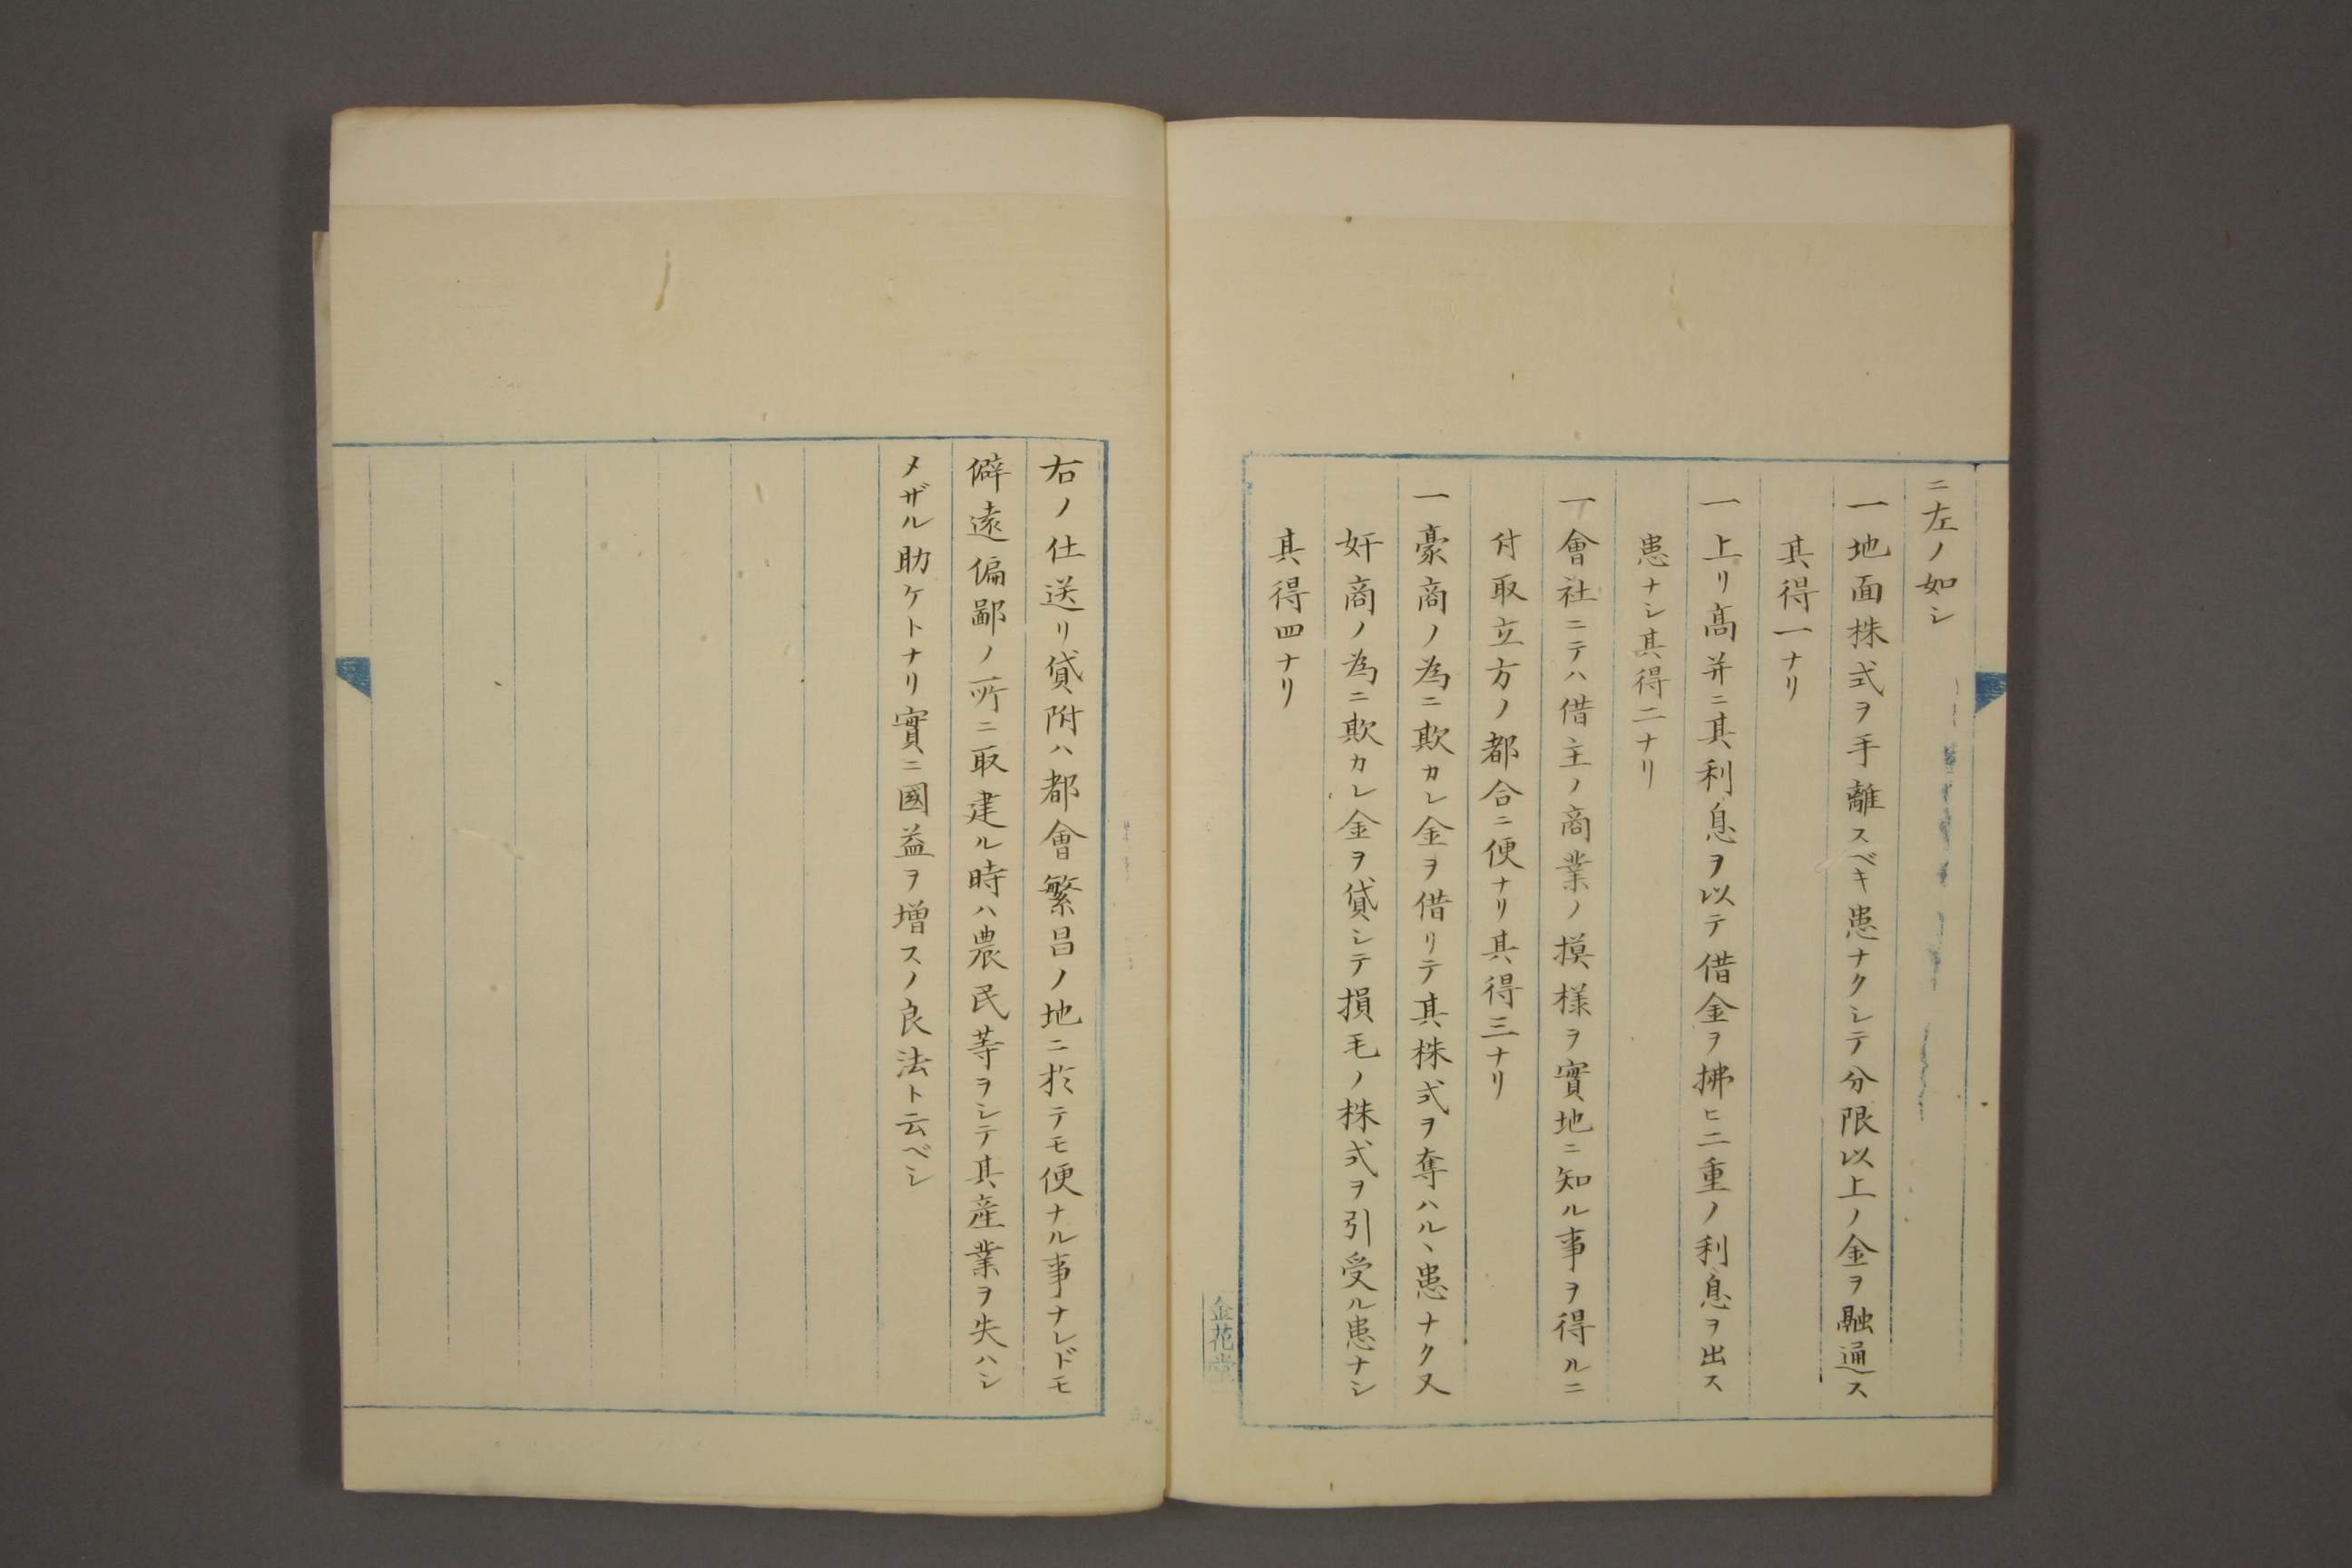 ニ左ノ如シ
一地面株式ヲ手離スベキ患ナクシテ分限以上ノ金ヲ融通ス
其得一ナリ
一上リ高并ニ其利息ヲ以テ借金ヲ拂ヒ二重ノ利息ヲ出ス
患ナシ其得二ナリ
一會社ニテハ借主ノ商業ノ摸様ヲ實地ニ知ル事ヲ得ルニ
付取立方ノ都合ニ便ナリ其得三ナリ
一豪商ノ為ニ欺カレ金ヲ借リテ其株式ヲ奪ハルヽ患ナク又
奸商ノ為ニ欺カレ金ヲ貸シテ損毛ノ株式ヲ引受ル患ナシ
其得四ナリ
金花堂
右ノ仕送リ貸附ハ都會繁昌ノ地ニ於テモ便ナル事ナレドモ
僻遠偏鄙ノ所ニ取建ル時ハ農民等ヲシテ其産業ヲ失ハシ
メザル助ケトナリ實ニ國益ヲ増スノ良法ト云ベシ